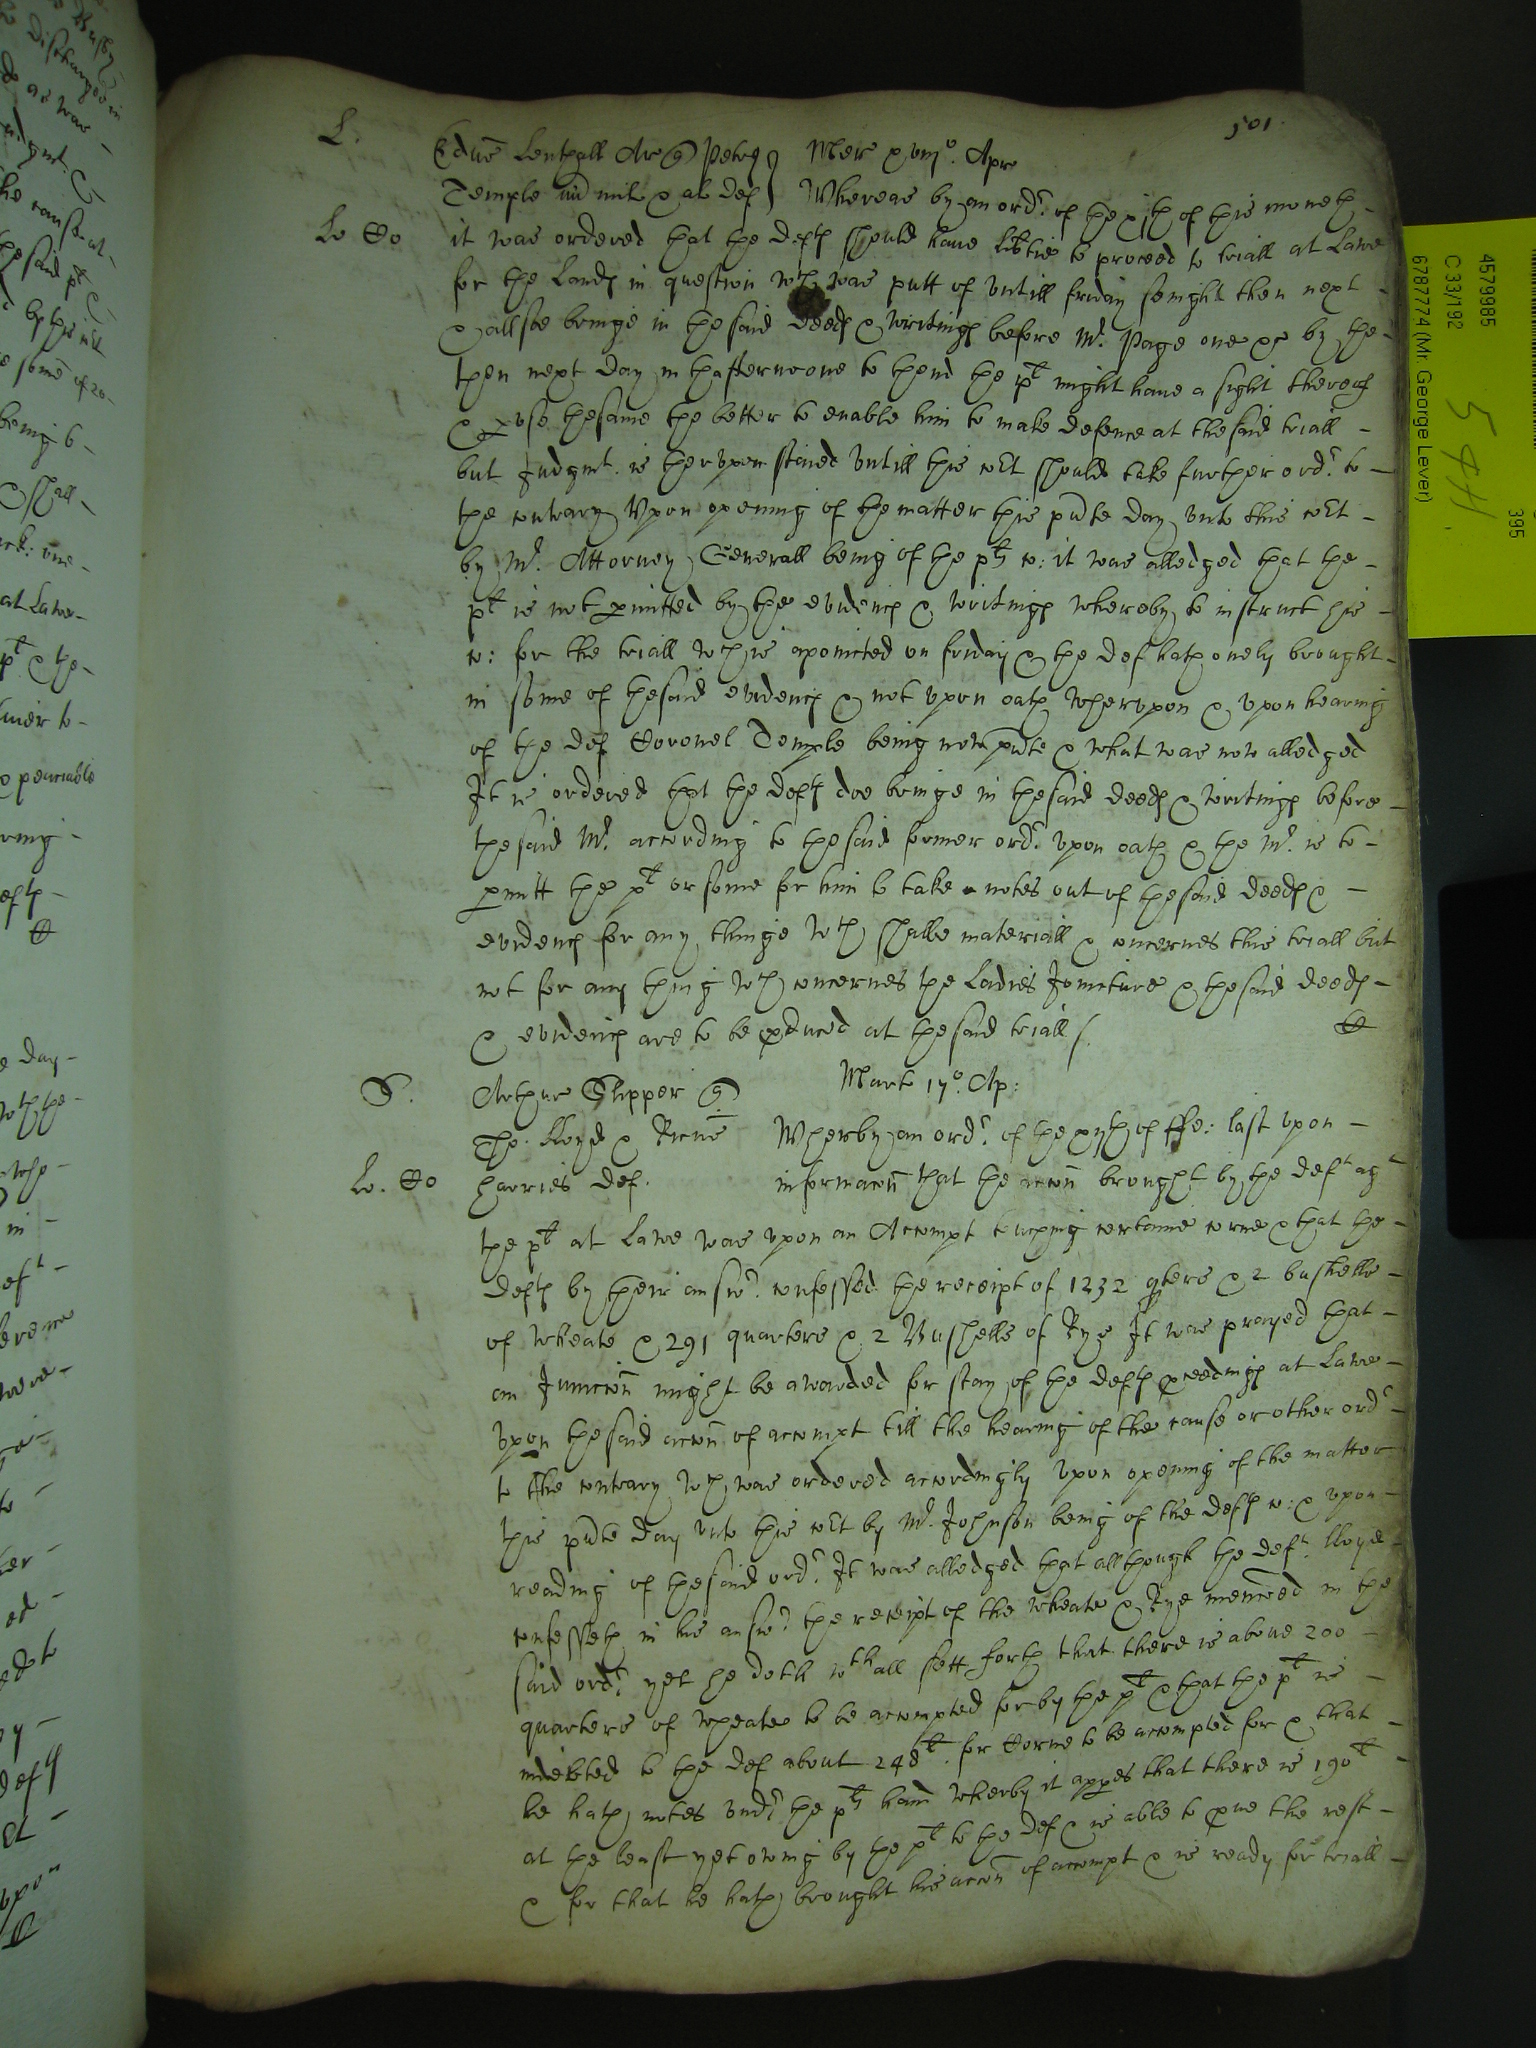 501
L. Edus Lenthall Ar q Petrus Mer xviijo. Apr
Temple mil & al def Whereas by an ordr. of the xjth of this moneth -
Lo Co it was ordered that the defts should have libtie to proceed to triall at Lawe
for the Lands in question wch was putt of untill friday senight then next -
& allsoe bringe in the said deeds & writings before Mr. Page one &c by the -
then next day in thafternoone to thend the plt might have a sight thereof
& puse the same the better to enable him to make defence at the said triall -
but Judgmt. is therupon staied untill this cort should take further ordr. to -
the contrary Upon opening of the matter this pnte day unto this cort -
by Mr. Attorney Generall being of the plts co: it was alledged that the -
plt is not pmitted by the evidences & writings whereby to instruct his -
co: for the triall wch is apointed on friday & the def hath onely brought -
in some of the said evidences & not upon oath Wherupon & upon hearing
of the def Coronel Temple being now pnte & what was now alledged
It is ordered that the defts doe bringe in the said deeds & writings before -
the said Mr. according to the said former ordr. upon oath & the Mr. is to -
pmitt the plt or some for him to take notes out of the said deeds & -
evidences for any thinge wch shalbe materiall & concernes this triall but
not for any thing wch concernes the Ladies Jointure & the said deeds -
& evidences are to be pduced at the said triall /.
S. Arthur Slipper q Mart 17o. Ap:
Tho: lloyd & Ricus Wherby an ordr. of the xijth of ffe: last upon -
Lo. Co harries def. informacon that the accon brought by the deft agt
the plt at Lawe was upon an Accompt tuching certaine corne & that the -
defts by their answr. confessed the receipt of 1232 qters & 2 bushells -
of wheate & 291 quarters & 2 Bushells of Rye It was prayed that -
an Juncon might be awarded for stay of the defts pceedings at Lawe -
upon the said accon of accompt till the hearing of the cause or other ordr -
to the contrary wch was ordered accordingly upon opening of the matter
this pnte day unto this cort by Mr. Johnson being of the defts co: & upon -
reading of the said ordr. It was alledged that allthough the deft. lloyde -
confesseth in his answr. the receipt of the wheate & Rye menconed in the
said ordr. yet he doth wthall sett forth that there is above 200 -
quarters of wheate to be accompted for by the plt & that the plt is -
indebted to the def about 248l. for Corne to be accompted for & that -
he hath notes undr the plts hand wherby it appes that there is 190l -
at the least yet owing by the plt to the def & is able to pve the rest -
& for that he hath brought his accon of accompt & is ready for triall -
4579985
C 33/192
6787774 (Mr. George Lever)
395